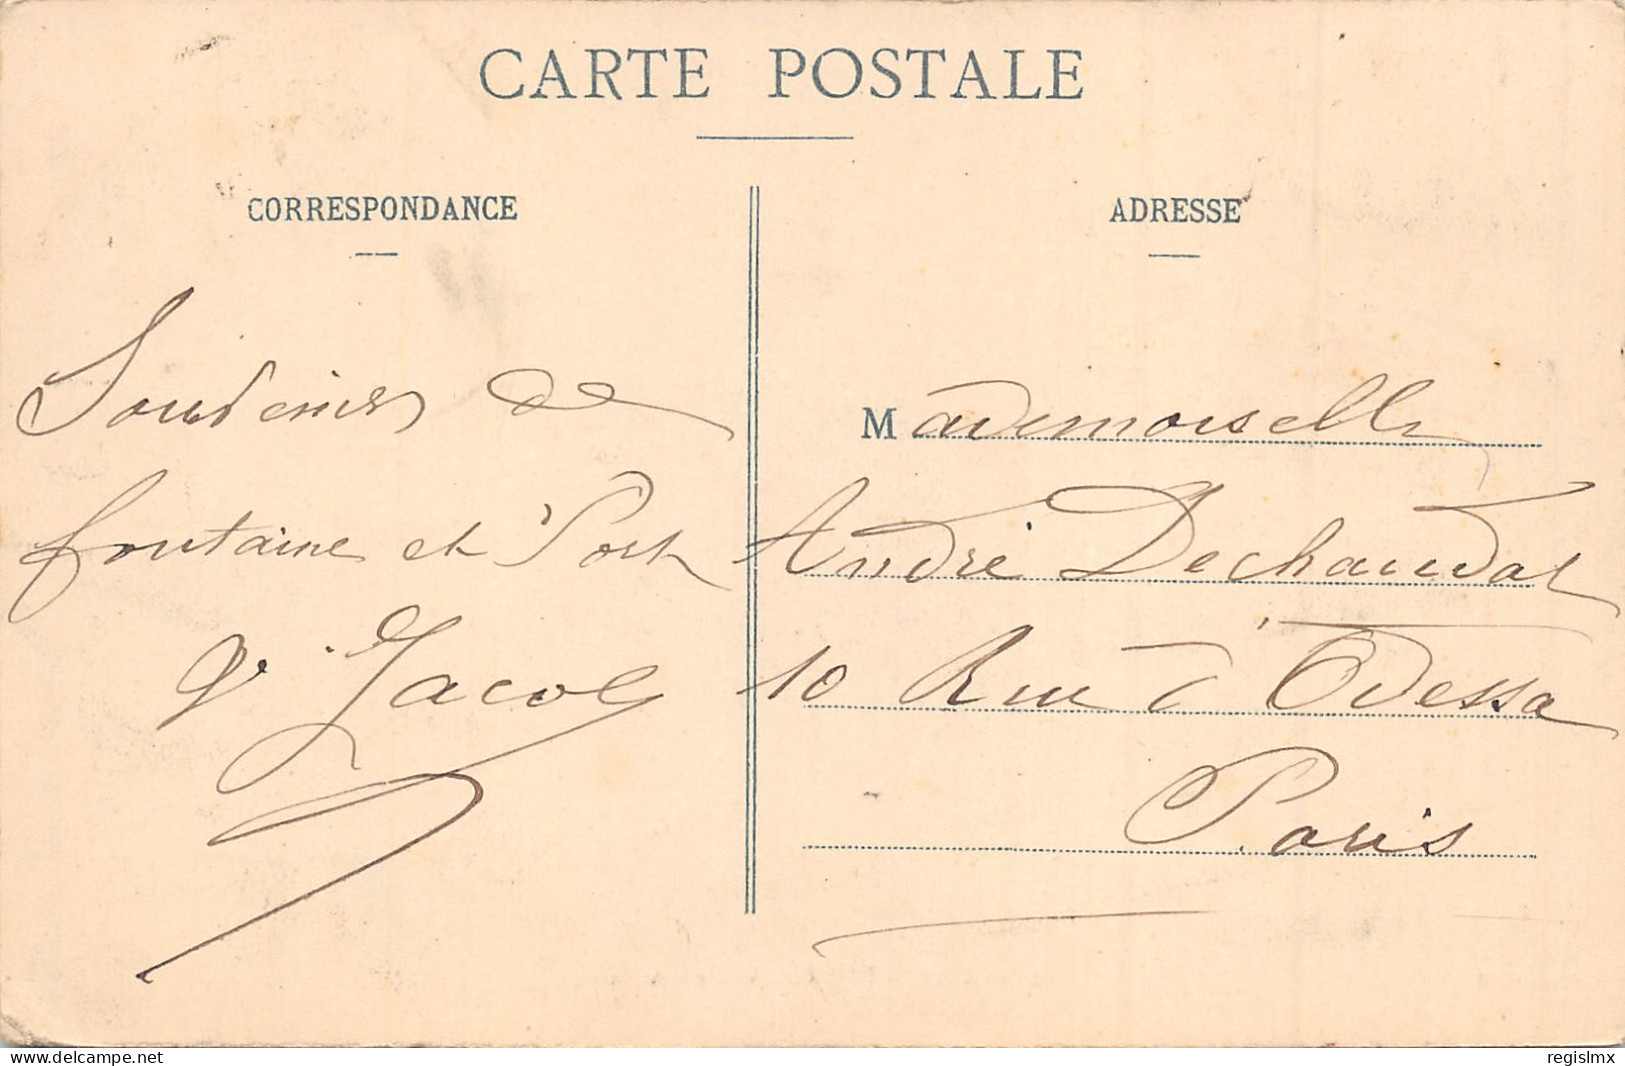 CARTE POSTALE
CORRESPONDANCE
Souvenirs de
fontaine et Pont
Jacob
ADRESSE
Mademoiselle
André Dechaudat
10 Rue d'Odessa
Paris
10e-arrdt-de-paris-ak148629
regislmx